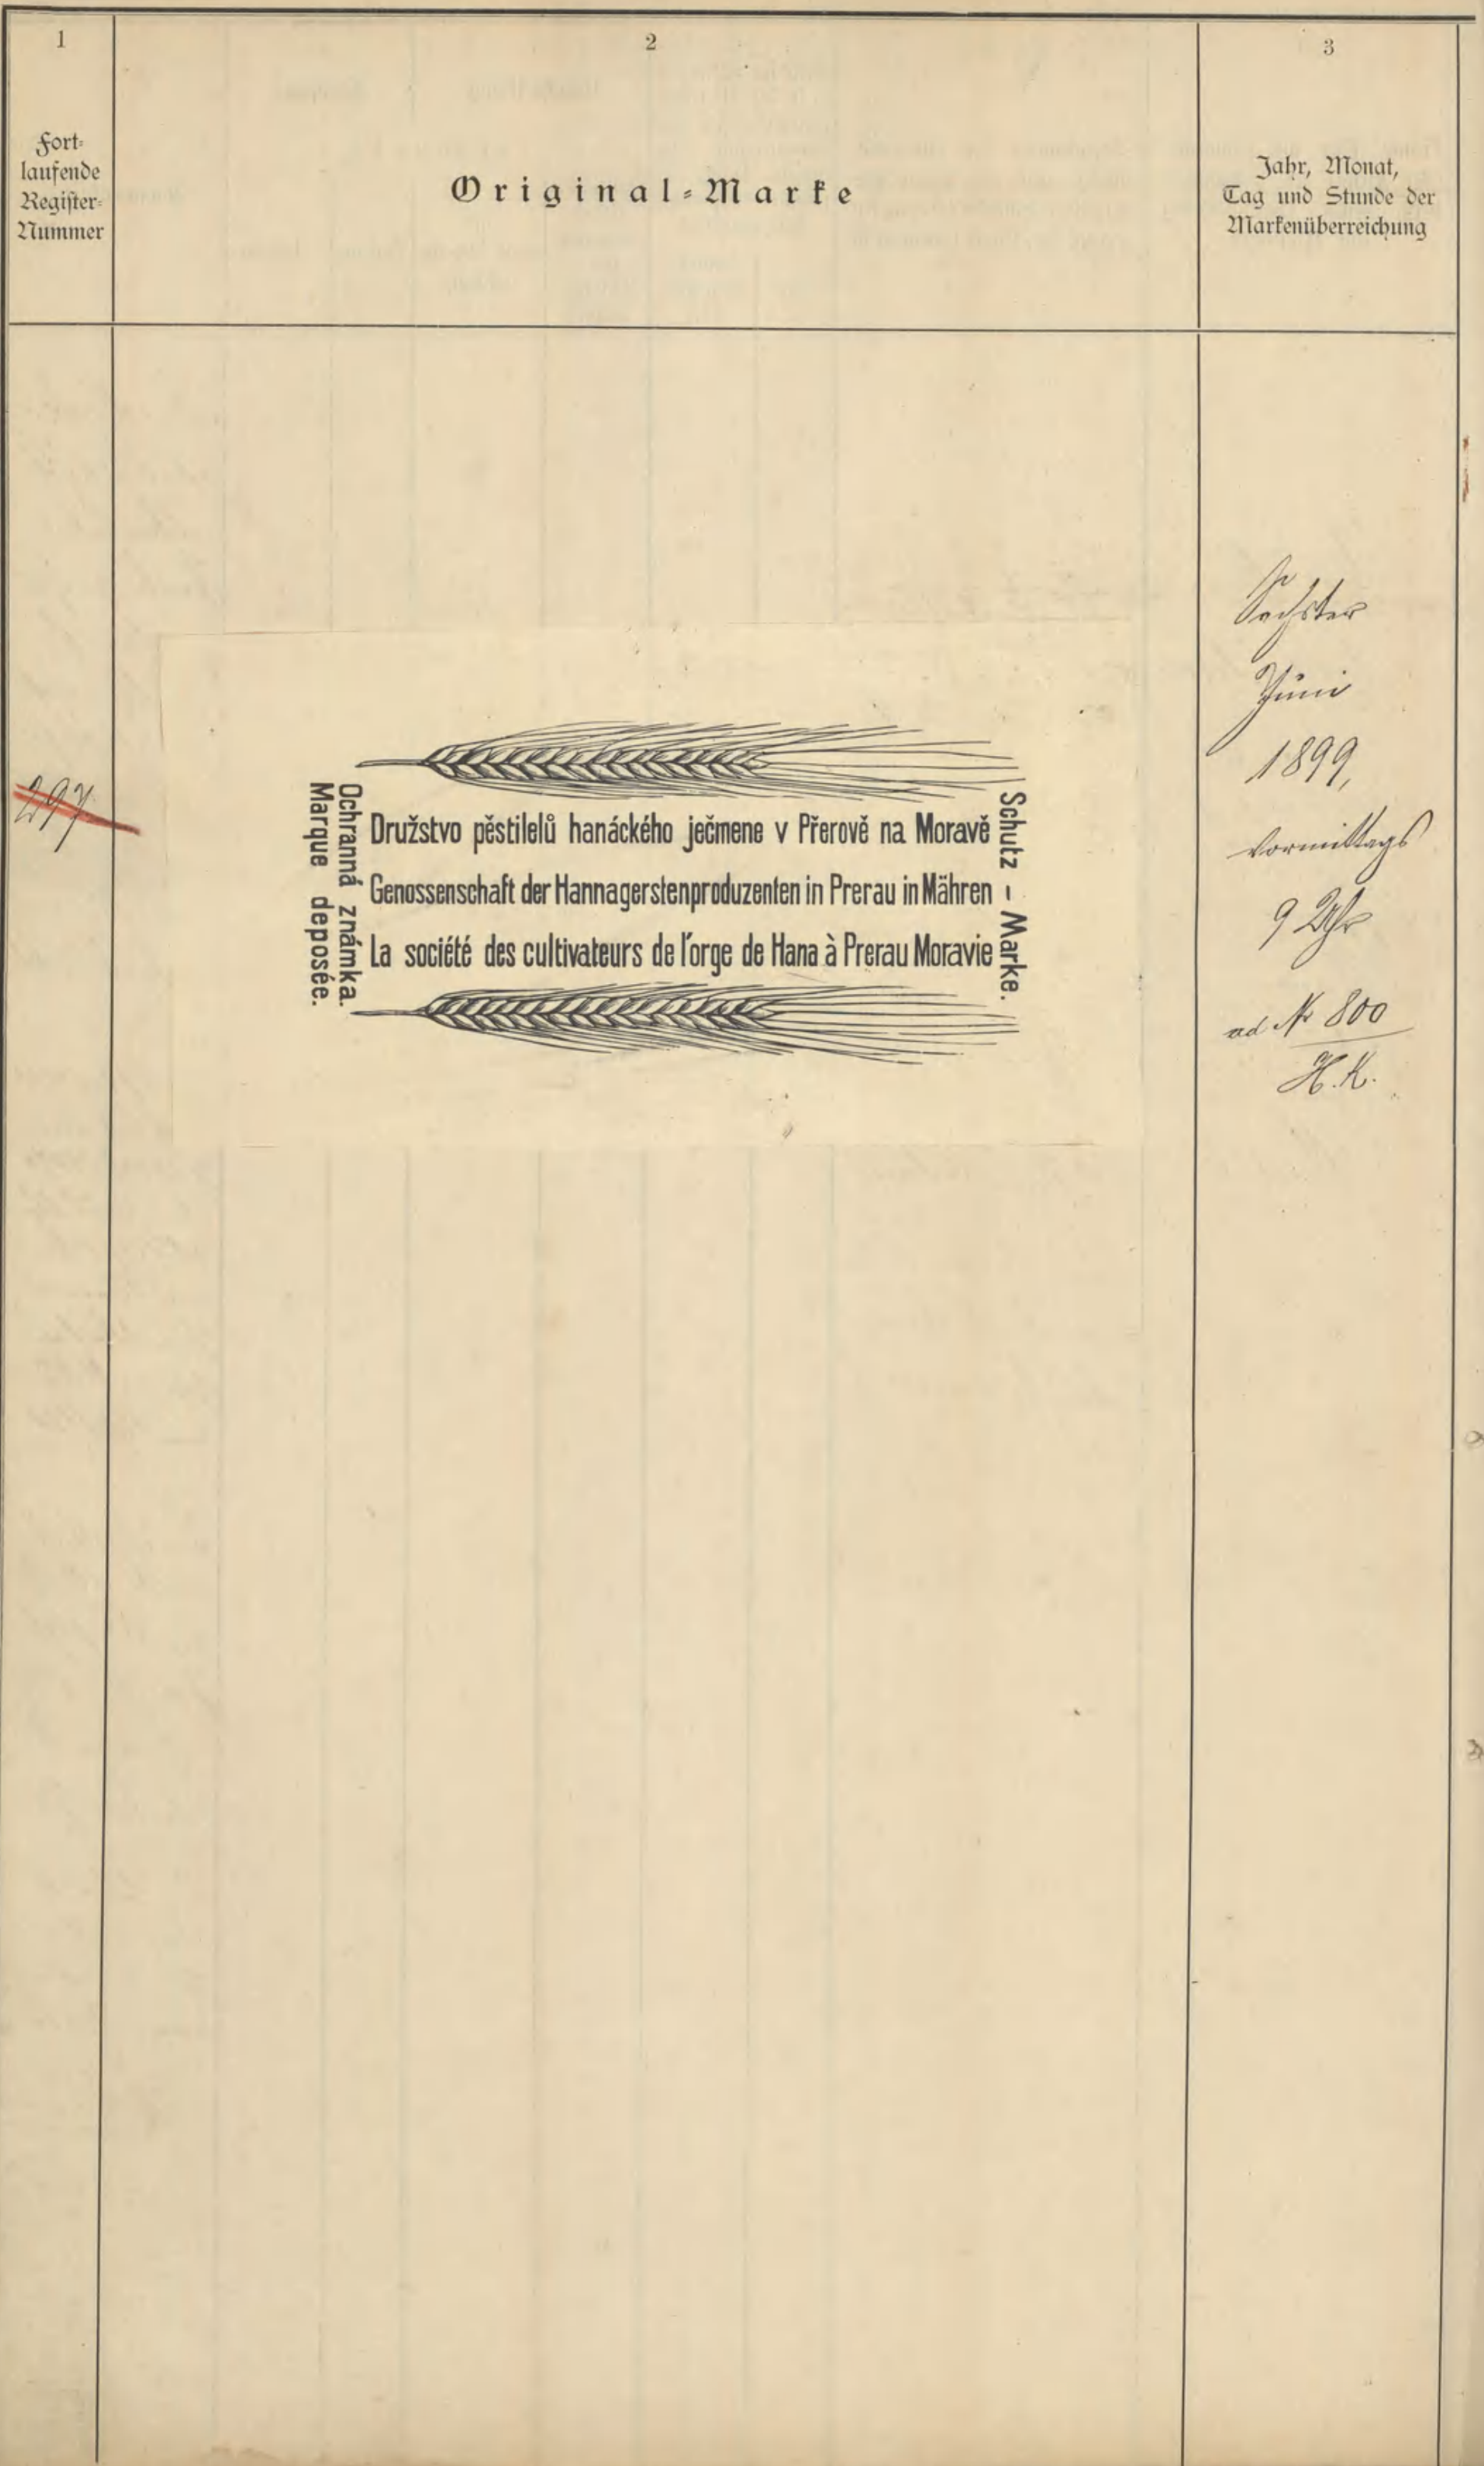 1
Fort-
laufende
Register-
Nummer
2
Original-Marke
3
Jahr, Monat,
Tag und Stunde der
Markenüberreichung
297
Družstvo pěstilelů hanáckého ječmene v Přerově na Moravě
Genossenschaft der Hannagerstenproduzenten in Prerau in Mähren
La société des cultivateurs de l'orge de Hana à Prerau Moravie
Ochranná známka.
Marque deposée.
Schutz - Marke.
Sechster
Juni
1899,
Vormittags
9 Uhr
ad Nr 800
H.K.